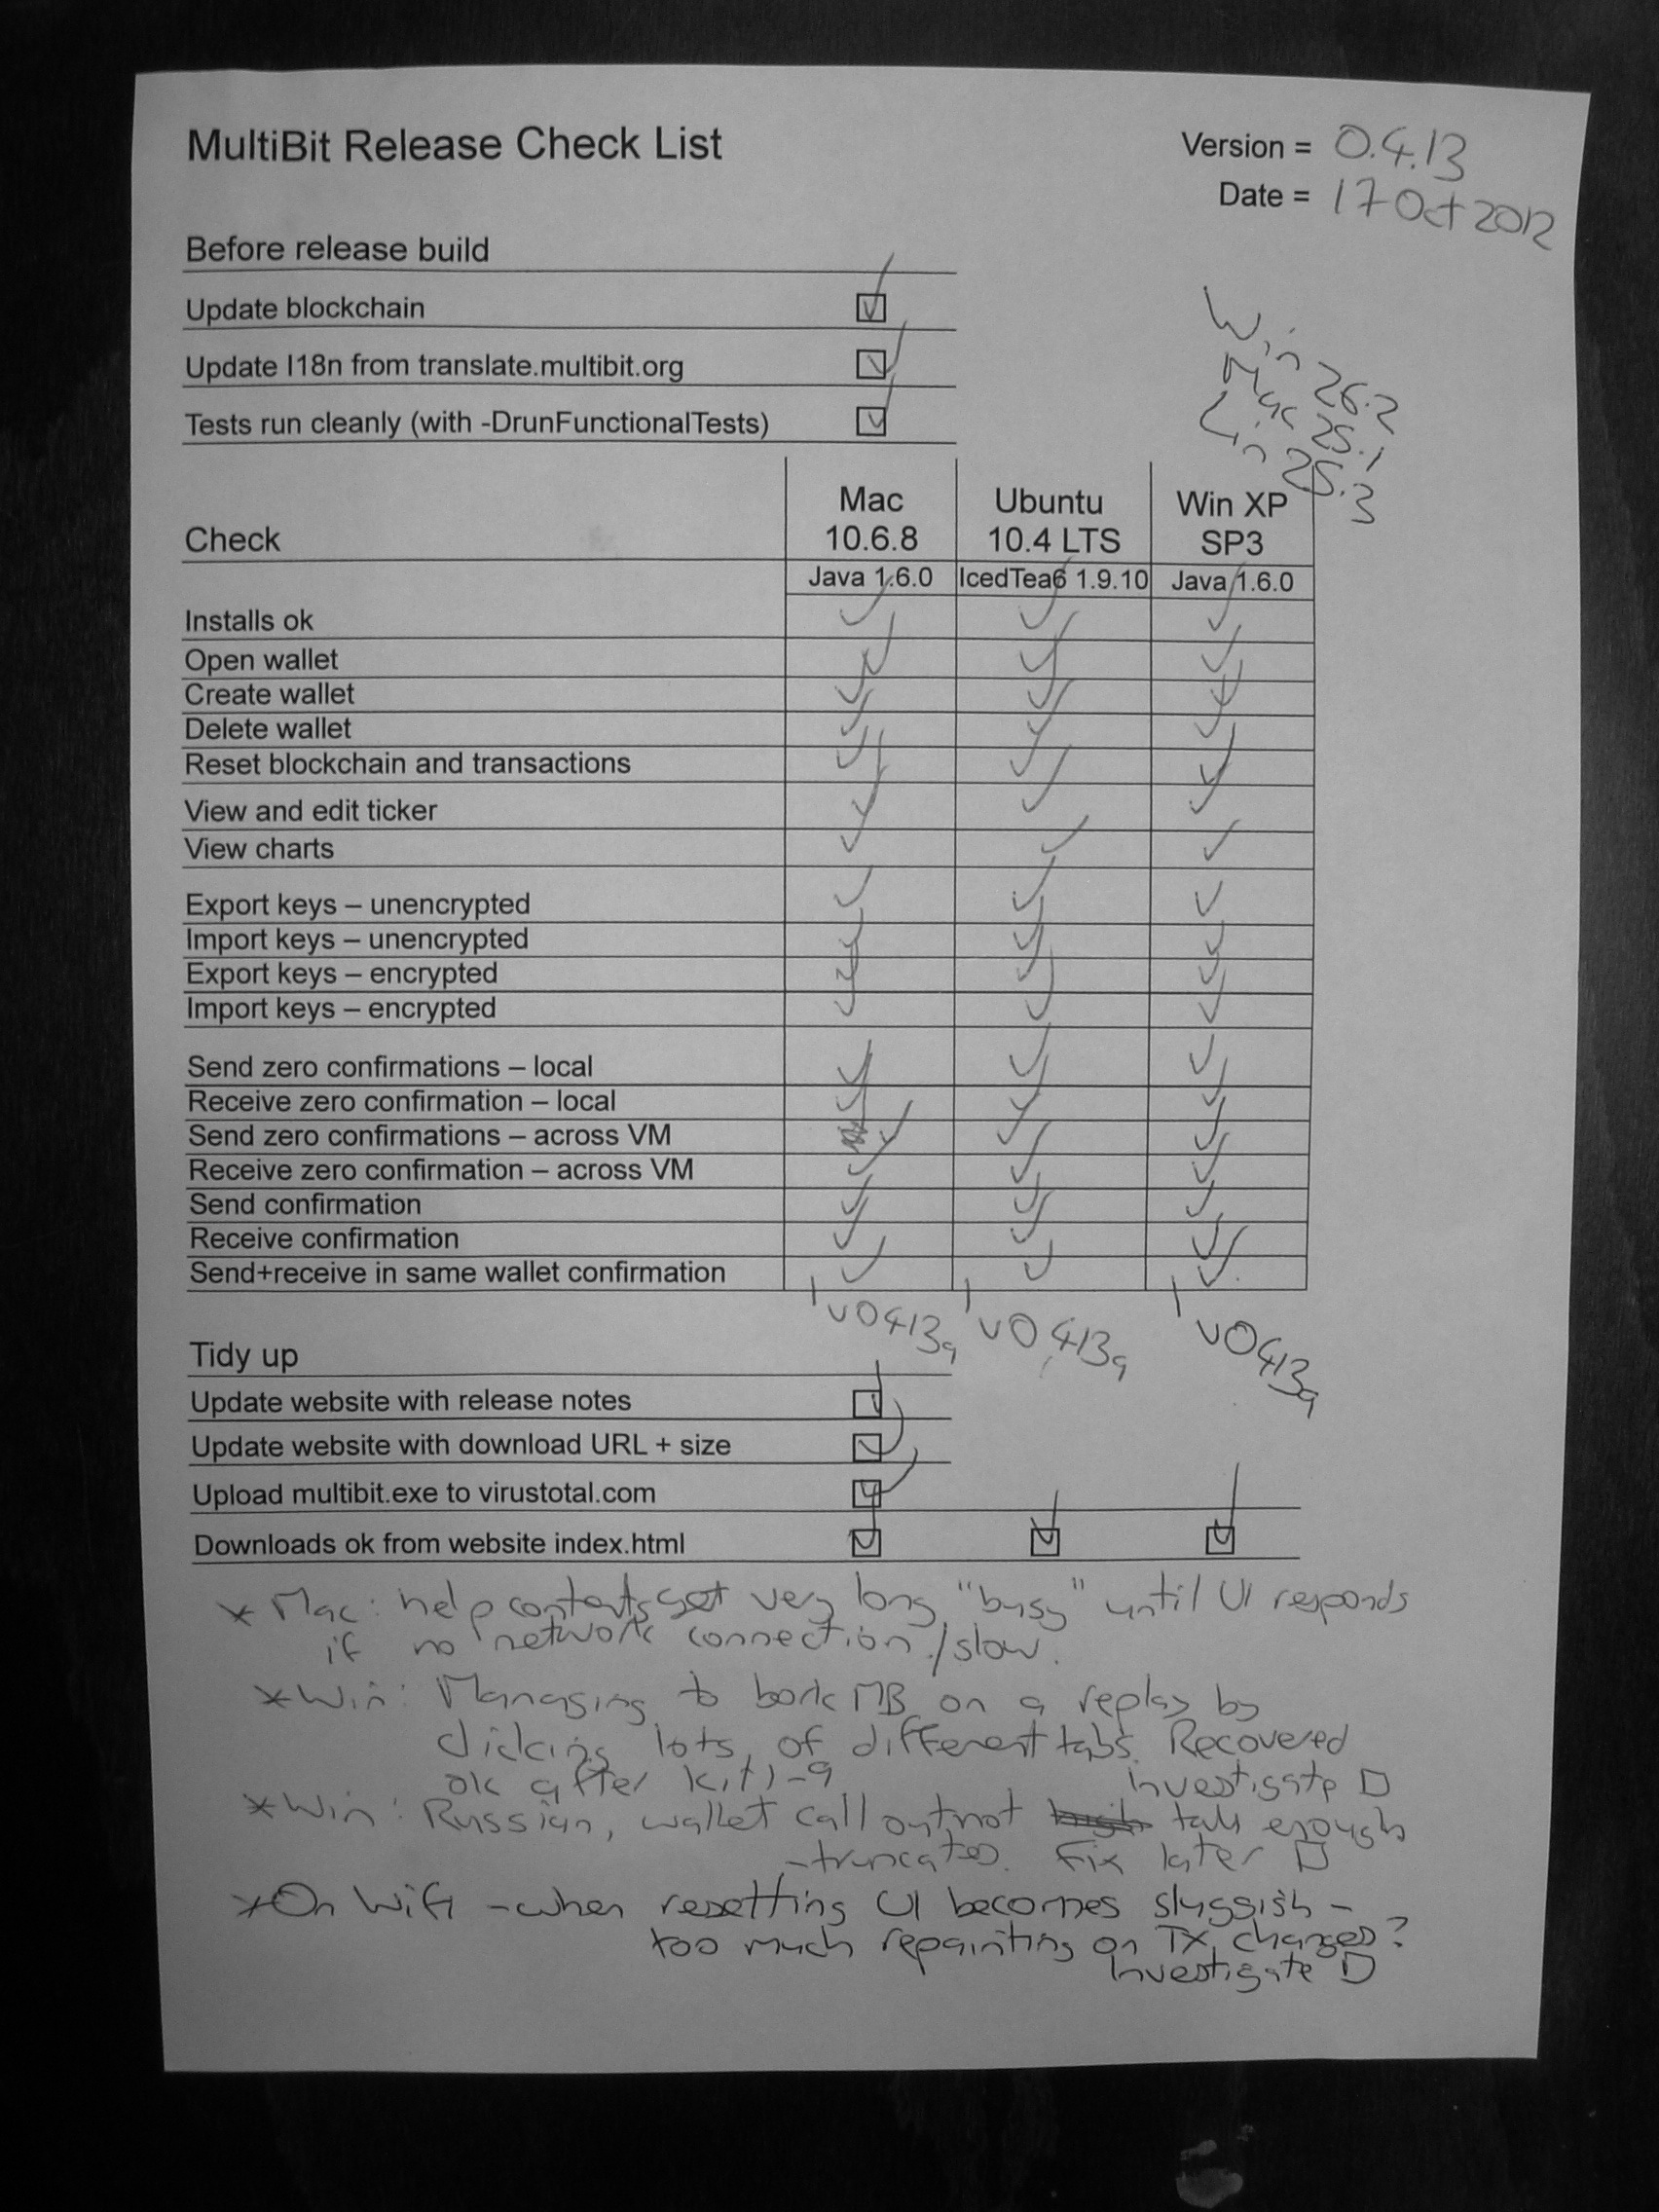 MultiBit Release Check List
Version = 0.4.13
Date = 17 Oct 2012
Before release build
Update blockchain
Update I18n from translate.multibit.org
Tests run cleanly (with -DrunFunctionalTests)
Win 26.2
Mac 25.1
Lin 25.3
Check
Mac 10.6.8
Ubuntu 10.4 LTS
Win XP SP3
Java 1.6.0
IcedTea6 1.9.10
Java 1.6.0
Installs ok
Open wallet
Create wallet
Delete wallet
Reset blockchain and transactions
View and edit ticker
View charts
Export keys – unencrypted
Import keys – unencrypted
Export keys – encrypted
Import keys – encrypted
Send zero confirmations – local
Receive zero confirmation – local
Send zero confirmations – across VM
Receive zero confirmation – across VM
Send confirmation
Receive confirmation
Send+receive in same wallet confirmation
v0413a v0.413a v0413a
Tidy up
Update website with release notes
Update website with download URL + size
Upload multibit.exe to virustotal.com
Downloads ok from website index.html
* Mac: help contents get very long "busy" until UI responds
if no network connection/slow.
* Win: Managing to bork MB on a replay by
clicking lots of different tabs. Recovered
ok after kill -9
Investigate
* Win: Russian, wallet call out not tall enough
- truncates. Fix later
* On Wifi - when resetting UI becomes sluggish -
too much repainting on TX changes?
Investigate